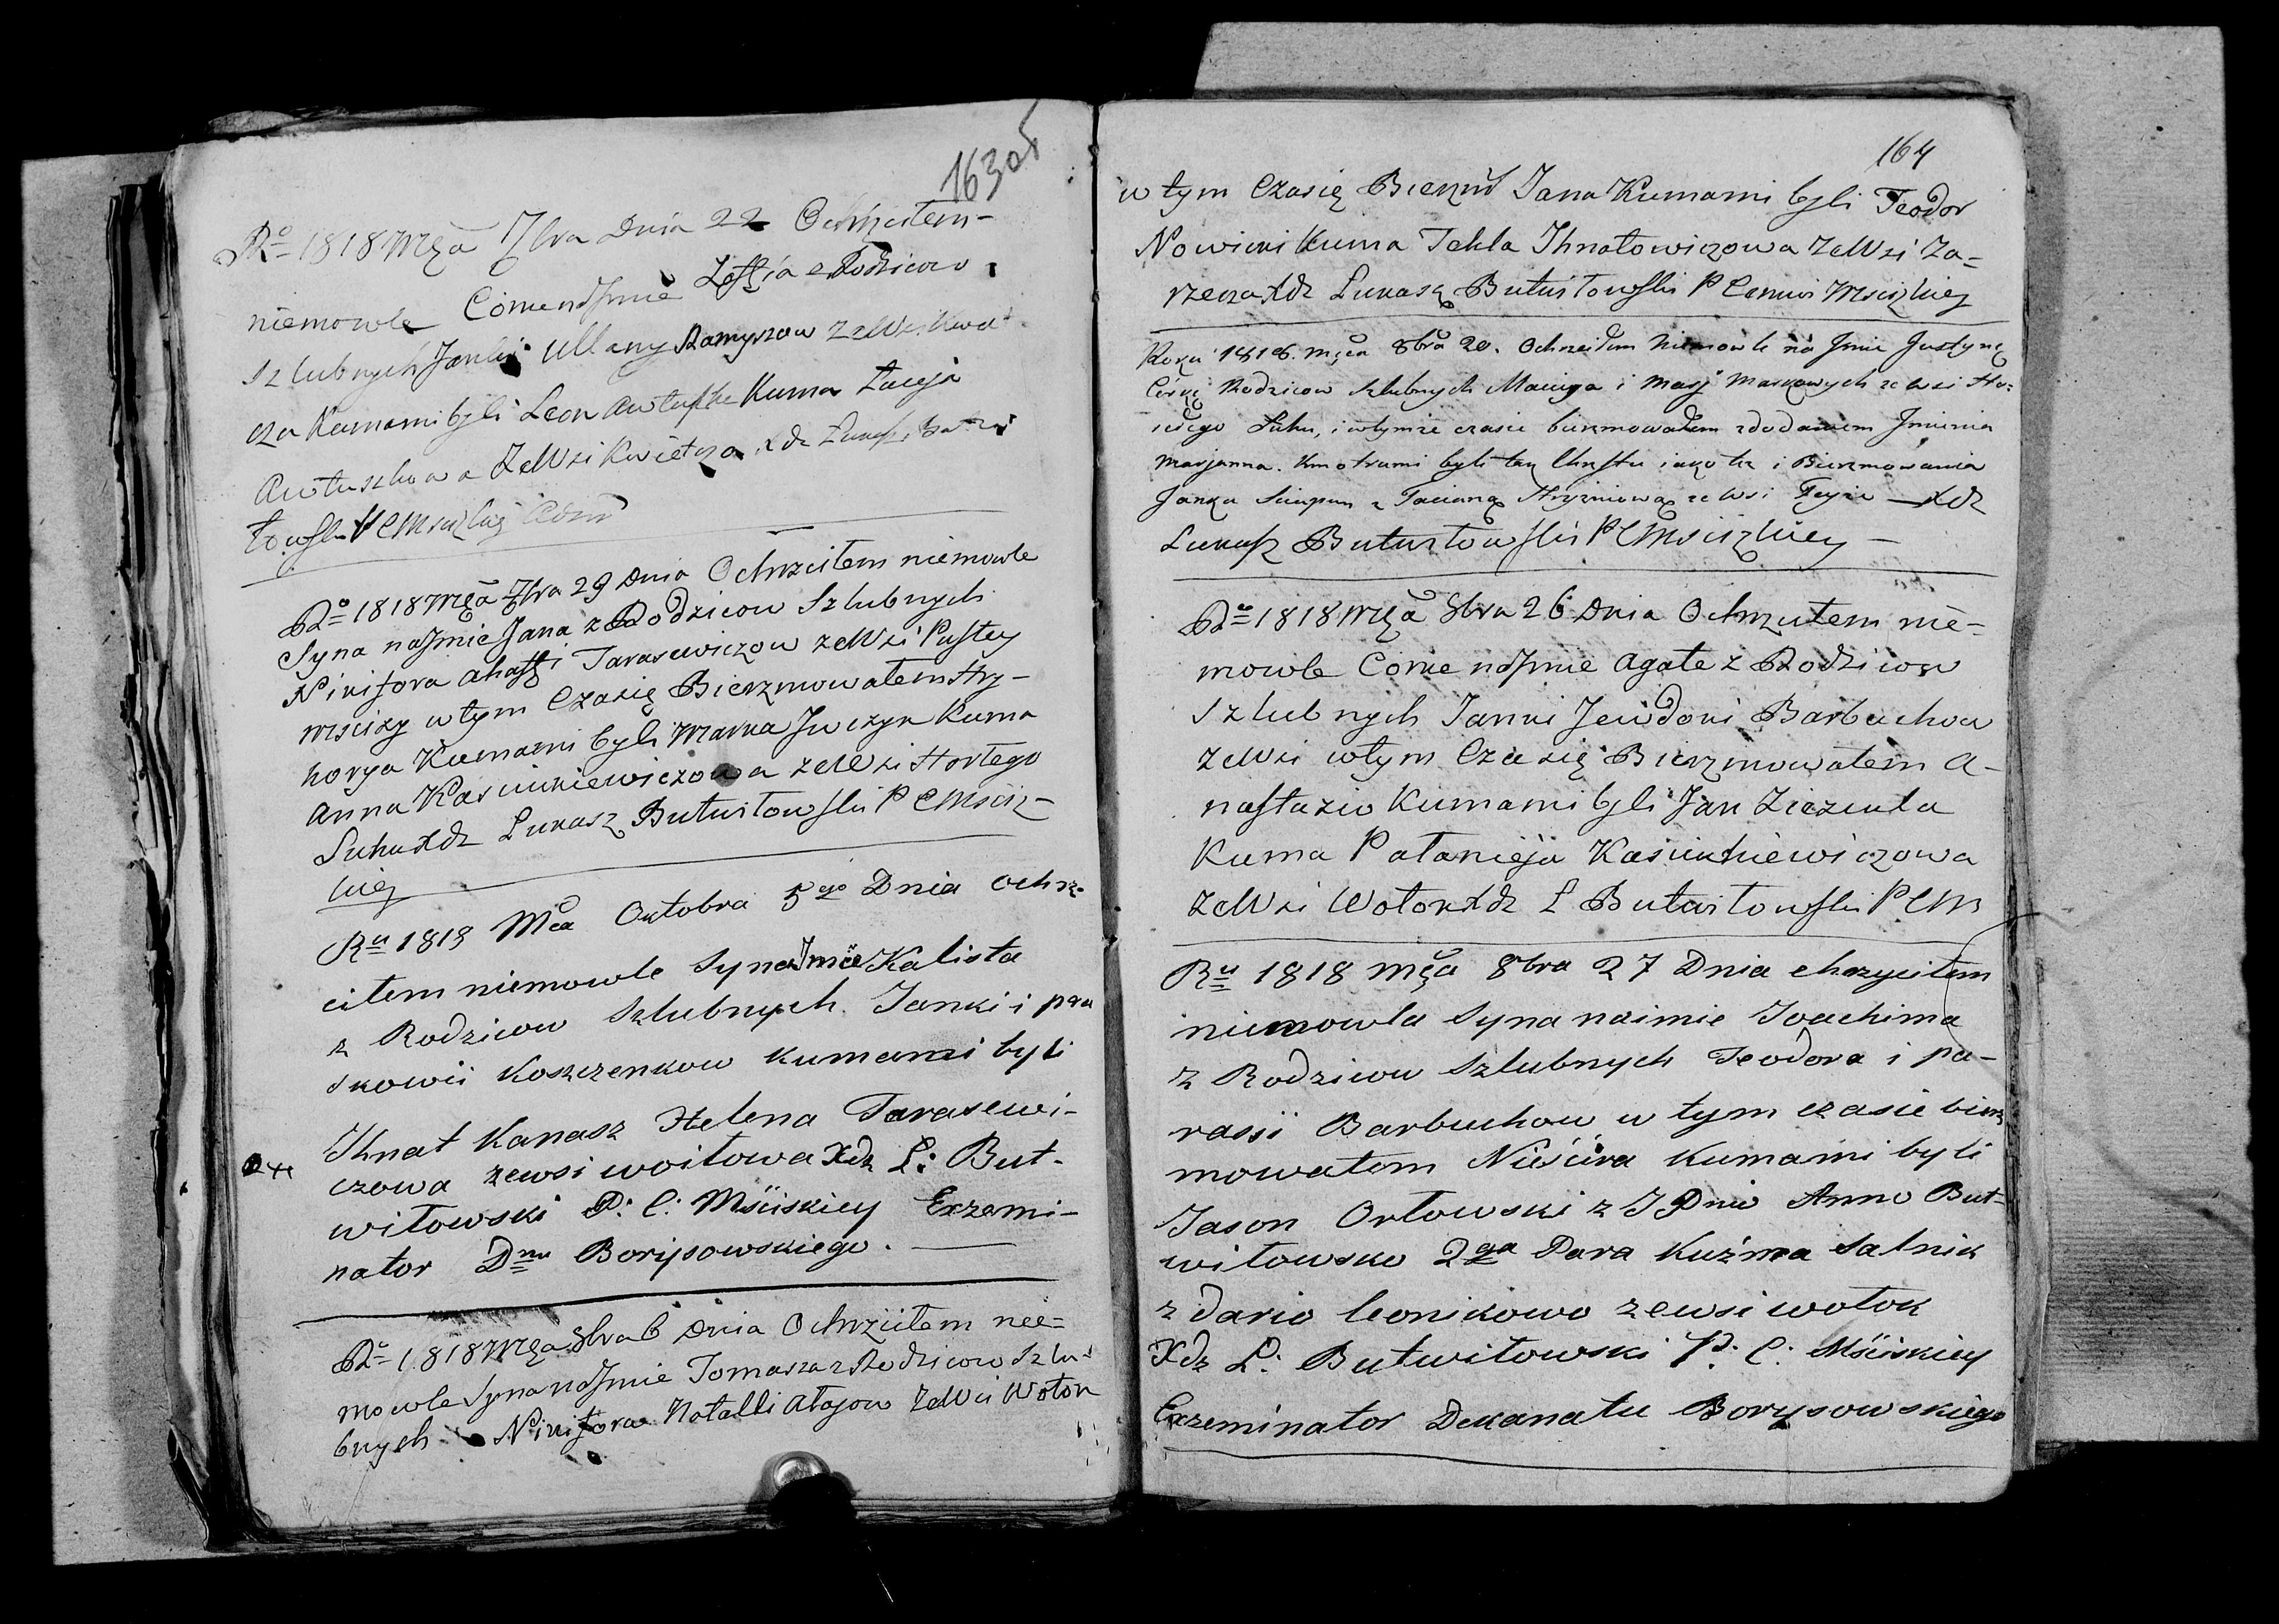 163 об
Rº 1818 Mca 7bra Dnia 22 Ochrzciłem
niemowle Corke na Jmie Zofjia z Rodzicow
Szlubnych Janki Ullany Ramyszow ze Wsi Kwet
cza Kumami byli Leon Awtuszko Kuma Łucija
Awtuszkowa ze Wsi Kwietcza Xdz Łukasz But
towski P C Msciżkiej
Rº 1818 Mca 7bra 29 Dnia Ochrzciłem niemowle
Syna na Jmie Jana z Rodzicow Szlubnych
Nikifora Ahafii Tarasewiczow ze Wsi Pustey
Mscizy w tym Czasię Bierzmowałem Hry-
horya Kumami byli Marka Juczyk Kuma
Anna Kasciukiewiczowa ze Wsi Hortego
Łuhu Xdz Łukasz Butwiłowski P C Msciż-
kiej
Ru 1818 Mca Oktobra 5go Dnia ochrz-
ciłem niemowle Syna Jmie Kalista
z Rodzicow Szlubnych Janki i pra
skowii Koszczenkow kumami byli
Ihnat Kanasz Helena Tarasewi-
czowa zewsi woitowa Xdz Ł: But-
wiłowski P: C: Mściskiey Exzami-
nator Dnu Borysowskiego.
Rº 1818 Mca 8bra 6 Dnia Ochrzciłem nie-
mowle Syna na Jmie Tomasza z Rodzicow Szlu-
bnych Nikifora Natalli Ałajow ze Wsi Wołok
164
w tym Czasię Bierzm Jana Kumami byli Teodor
Nowicki Kuma Tekla Ihnatowiczowa ze Wsi Za-
rzecza Xdz Łukasz Butwiłowski P C Msciżkiej
Roku 1818. Mca 8bra 20. Ochrzciłem Niemowle na Jmie Justynę
Córkę Rodzicow szlubnych Macieja i Marj Markowych ze wsi Ho-
łego Łuhu, i w tymże czasie bierzmowałem z dodaniem Jmienia
Marjanna. Kmotrami byli tak Chrztu iako też i Bierzmowania
Janka z Tacianą ze wsi Xdz
Łukasz Butwiłowski P C Msciżkiey
Rº 1818 Mca 8bra 26 Dnia Ochrzciłem nie-
mowle Corke na Jmie Agate z Rodzicow
Szlubnych Janki Jewdoki Barbuchow
ze Wsi w tym Czasię Bierzmowałem A-
nastazio Kumami byli Jan Zieziula
Kuma Pałanieja Kasciukiewiczowa
ze Wsi Wołok Xdz Ł Butwiłowski P C M
Ru 1818 Mca 8bra 27 Dnia chrzyciłem
niemowla Syna naimie Joachima
z Rodzicow Szlubnych Teodora i pa-
rasii Barbuchow w tym czasie bierz
mowałem Kumami byli
Jason Orłowski z J Pnio Anno But-
wiłowsko 2ga Para Kuźma Salnik
z dario leonikowo zewsi wołok
Xdz Ł: Butwiłowski P: C: Mściskiey
Exzeminator Dekanatu Borysowskiego